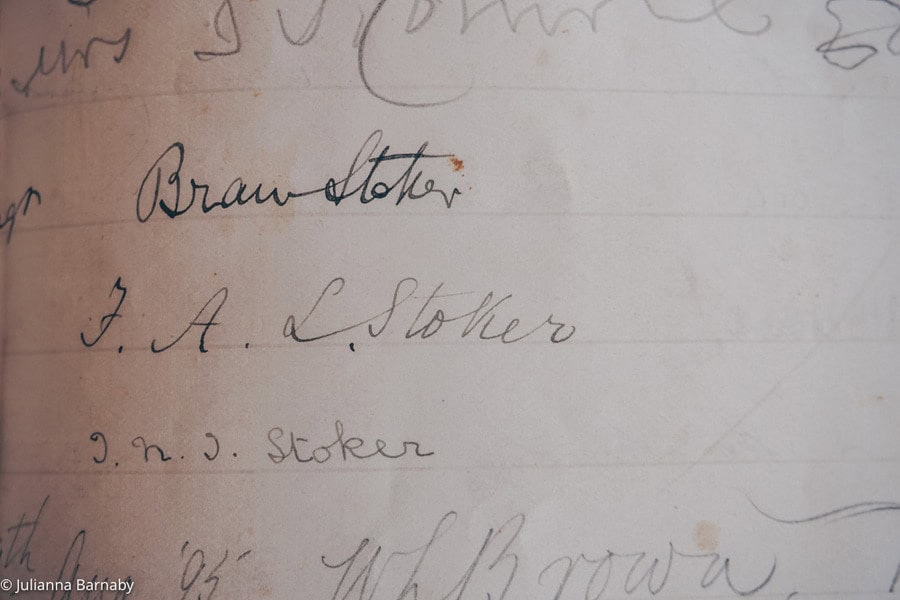 Mrs
Bram Stoker
F. A. L. Stoker
I. N. T. Stoker
th Aug '95 Wh Brown
© Julianna Barnaby